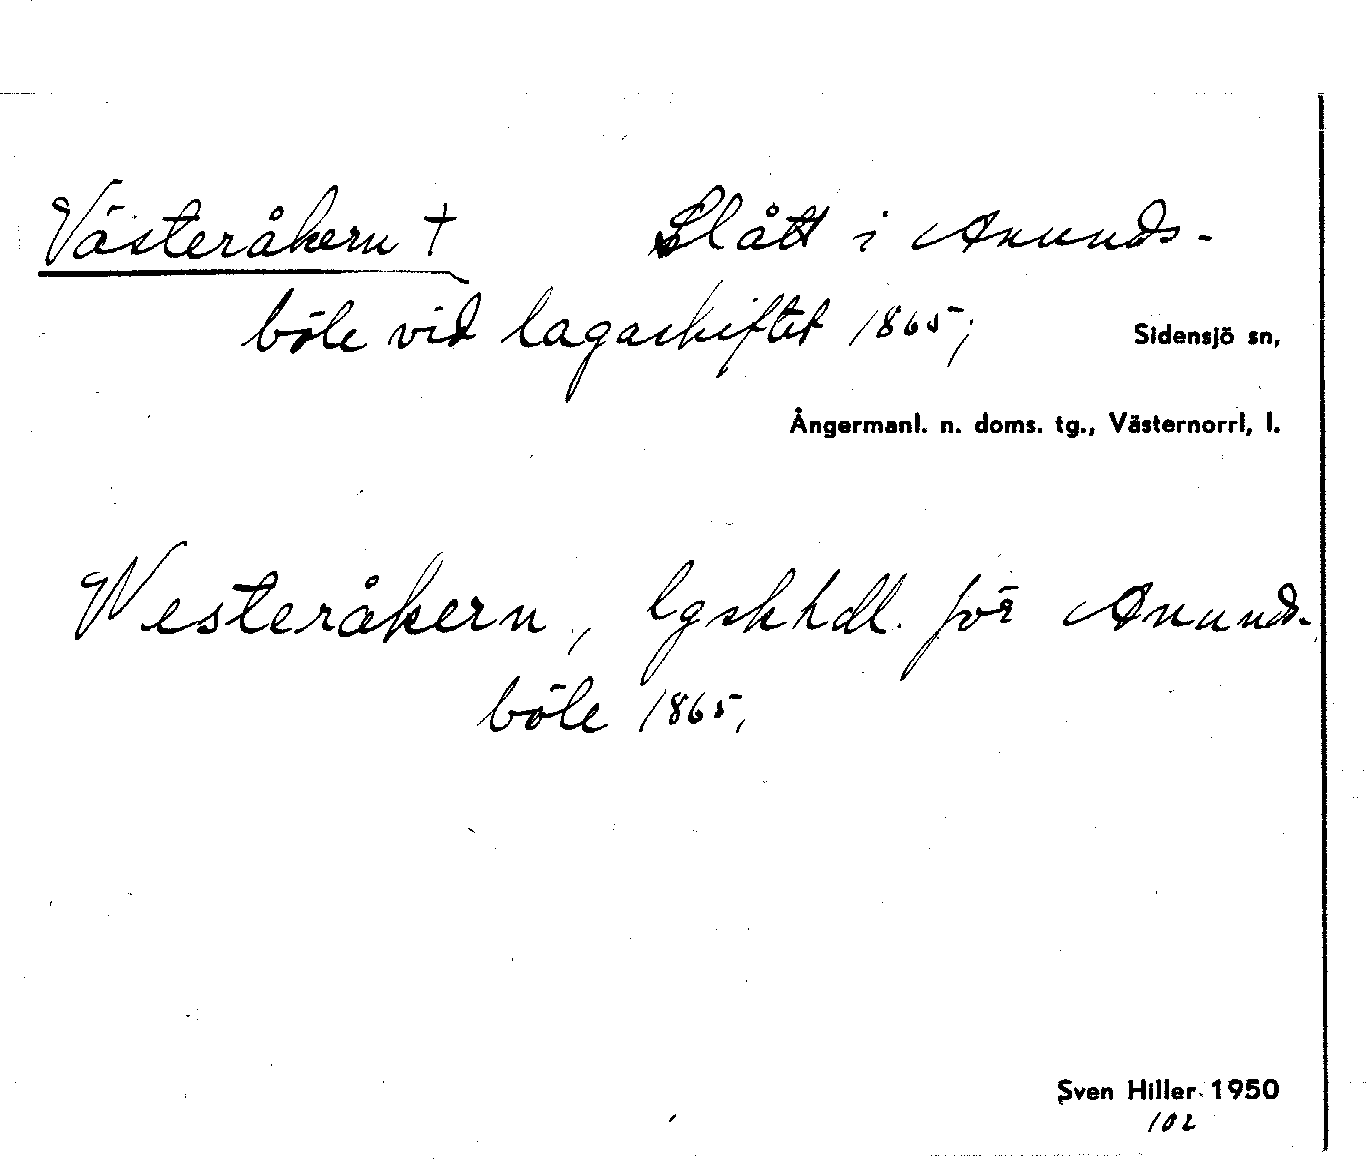 Västeråkern † Slått i Anunds-
böle vid lagaskiftet 1865;
Sidensjö sn,
Ångermanl. n. doms. tg., Västernorrl, l.
Westeråkern, lgskhdl. för Anunds-
böle 1865,
Sven Hiller 1950
102